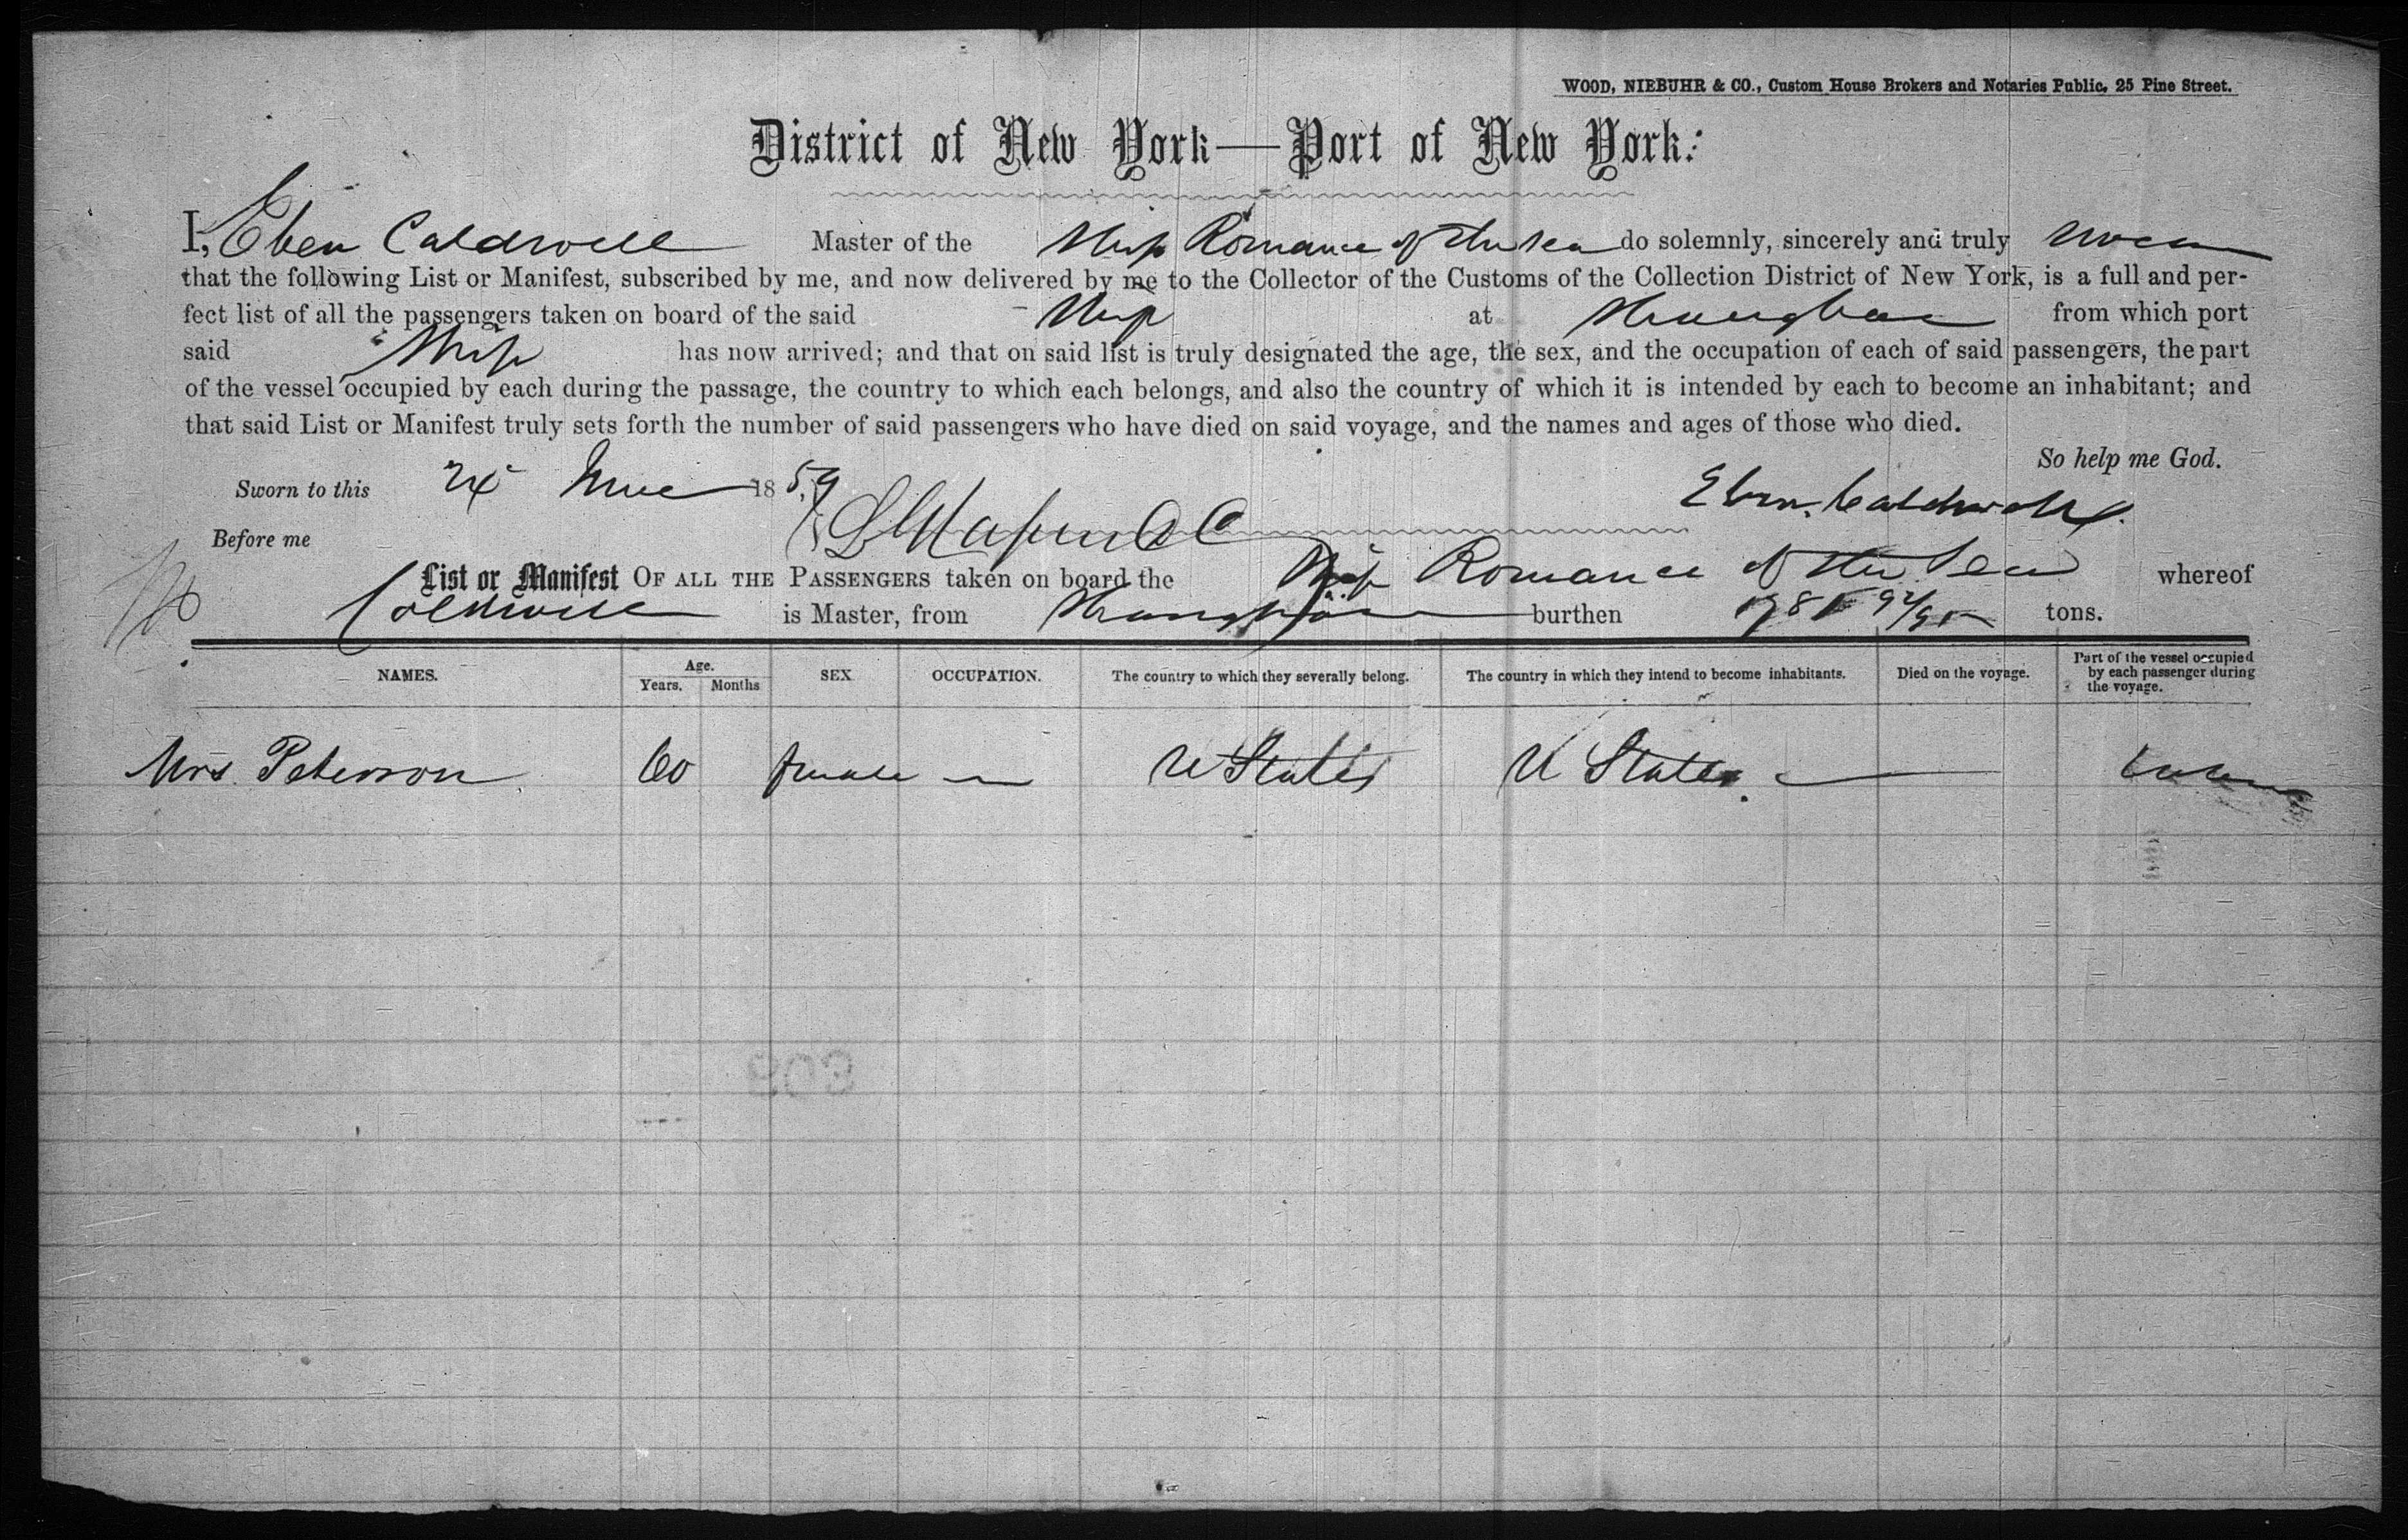 WOOD, NIEBUHR & CO., Custom House Brokers and Notaries Public, 25 Pine Street.
District of New York—Port of New York:
I, Eben Caldwell Master of the Ship Romance of the Sea do solemnly, sincerely and truly swear
that the following List or Manifest, subscribed by me, and now delivered by me to the Collector of the Customs of the Collection District of New York, is a full and per-
fect list of all the passengers taken on board of the said Ship at Shanghae from which port
said Ship has now arrived; and that on said list is truly designated the age, the sex, and the occupation of each of said passengers, the part
of the vessel occupied by each during the passage, the country to which each belongs, and also the country of which it is intended by each to become an inhabitant; and
that said List or Manifest truly sets forth the number of said passengers who have died on said voyage, and the names and ages of those who died.
So help me God.
Sworn to this 1859
Eben. Caldwell
Before me
List or Manifest OF ALL THE PASSENGERS taken on board the Ship Romance of the Sea whereof
Caldwell is Master, from Shanghae burthen tons.
NAMES. Age. Years. Months SEX OCCUPATION. The country to which they severally belong. The country in which they intend to become inhabitants. Died on the voyage. Part of the vessel occupied by each passenger during the voyage.
Mrs. Peterson 60 female — U States U States —